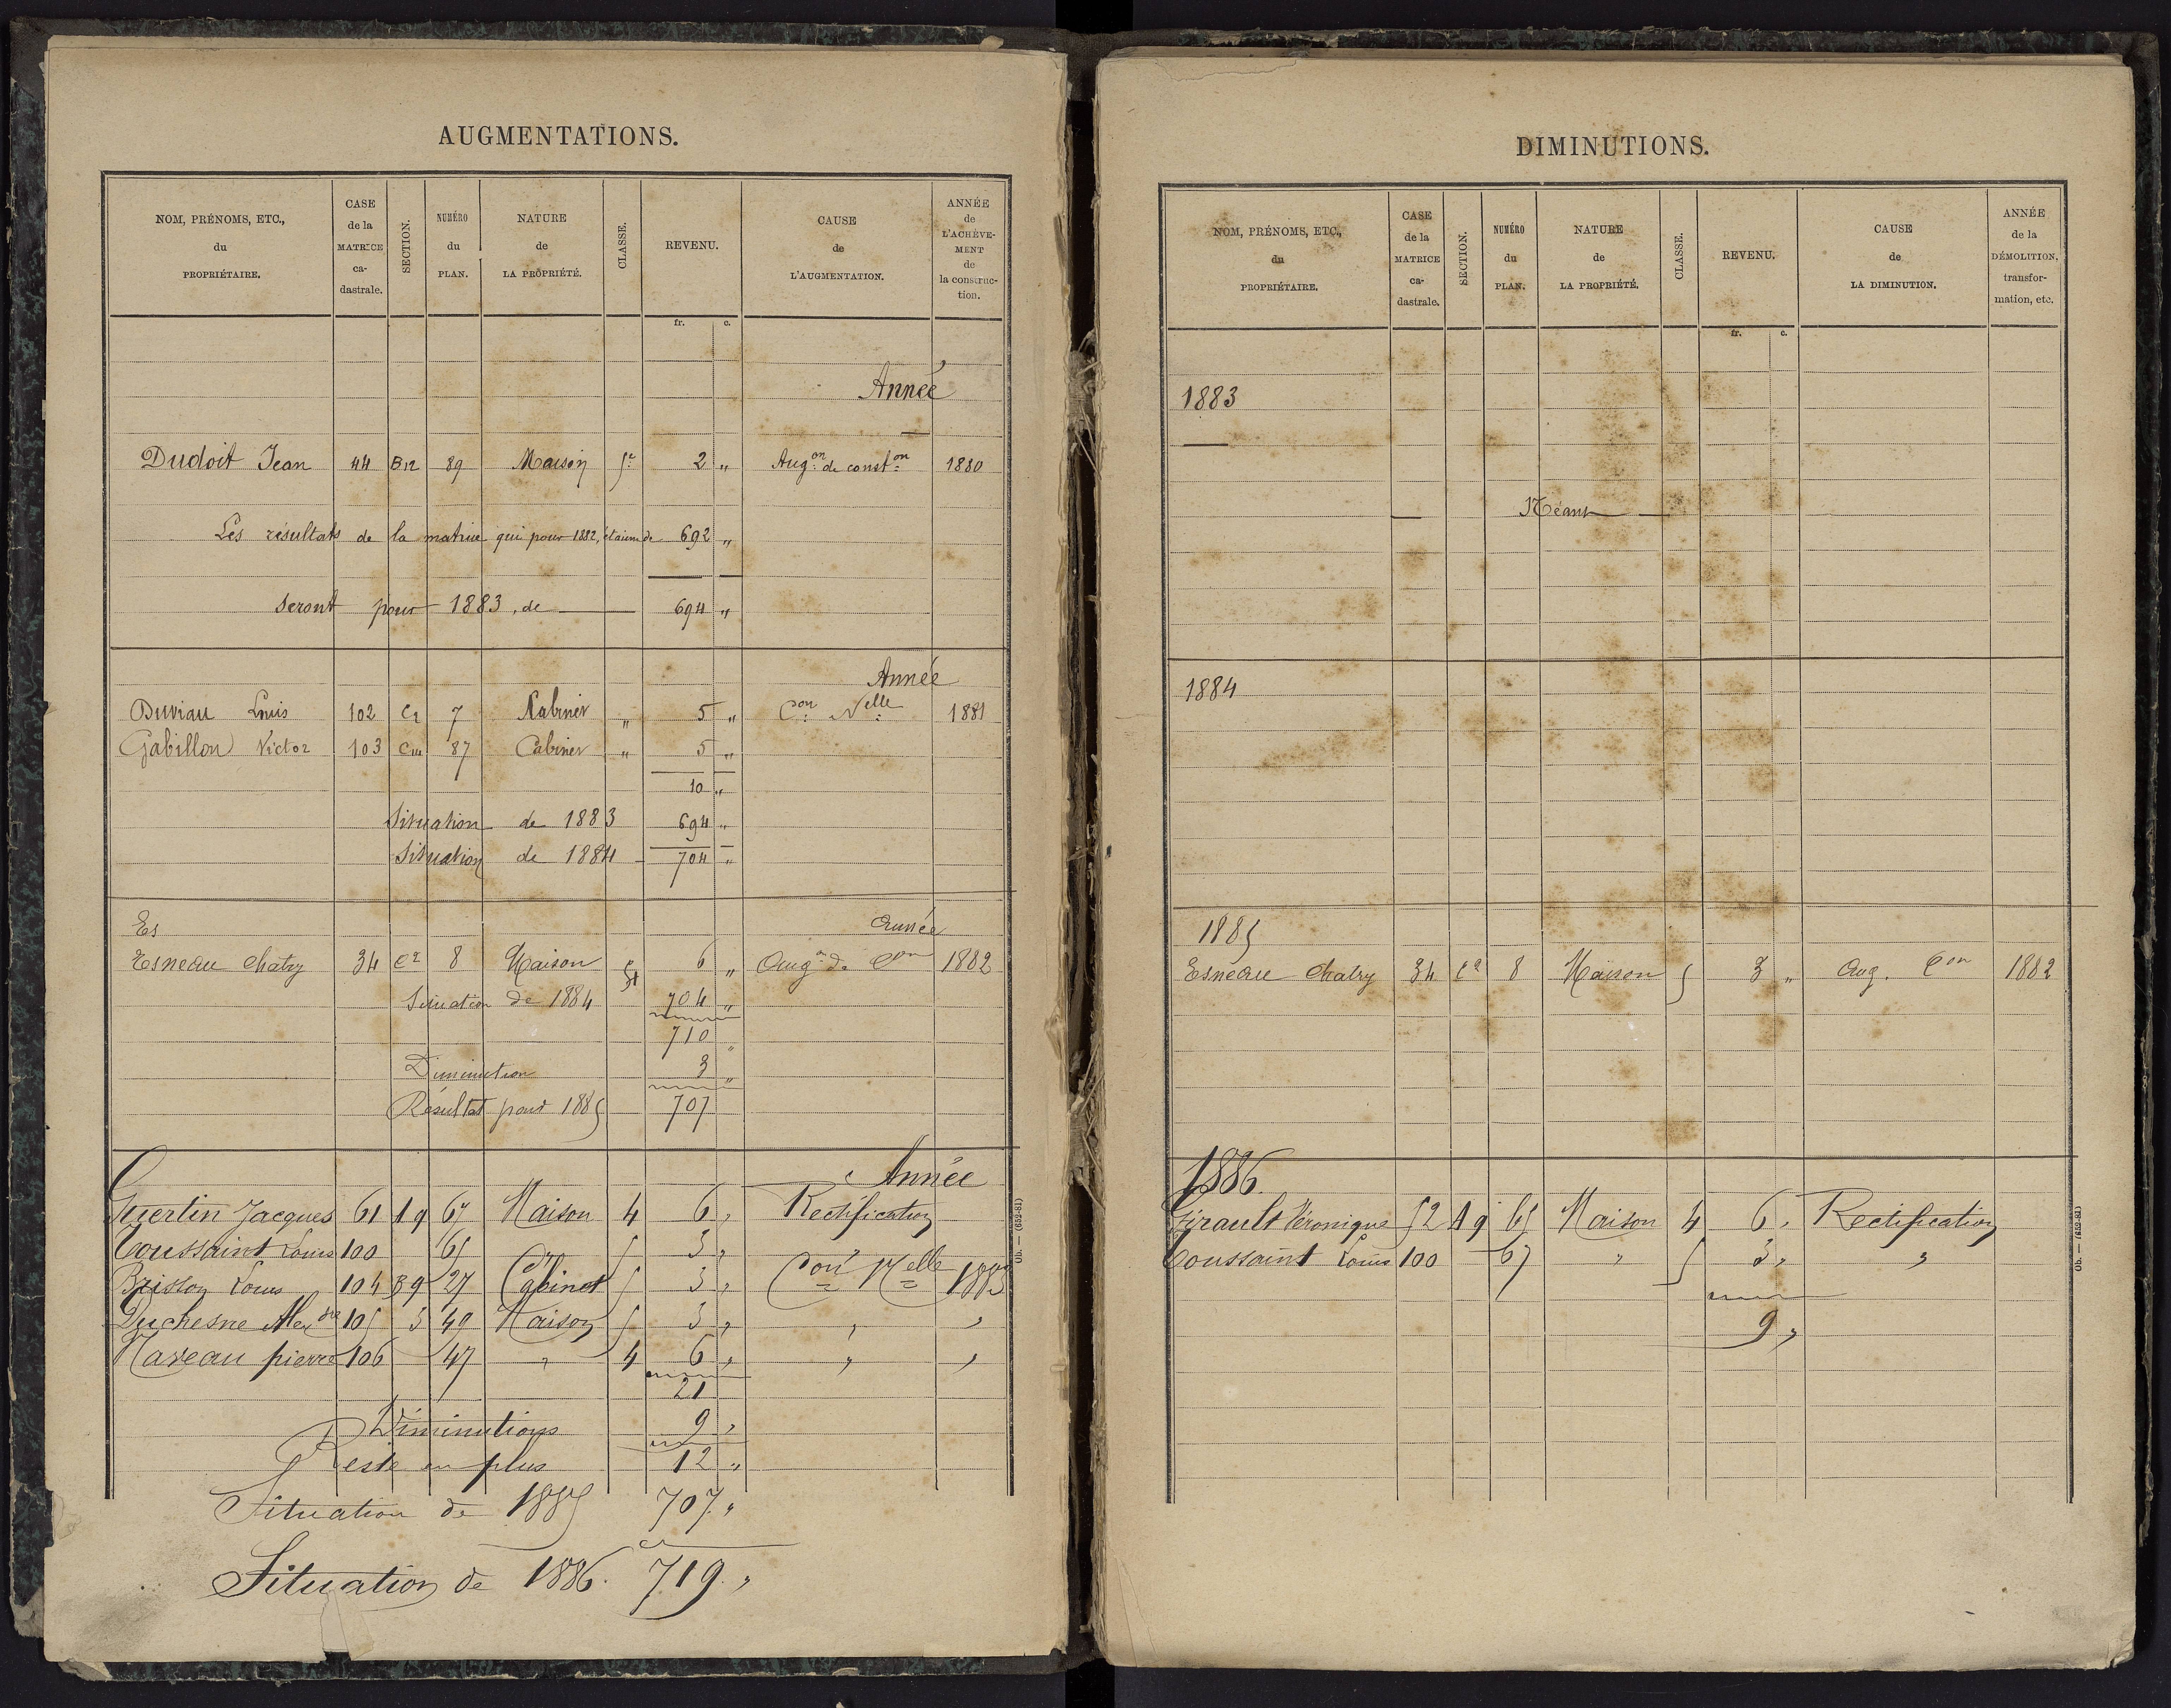 AUGMENTATIONS.
NOM, PRÉNOMS, ETC., du PROPRIÉTAIRE. | CASE de la MATRICE ca-dastrale. | SECTION. | NUMÉRO du PLAN. | NATURE de LA PROPRIÉTÉ. | CLASSE. | REVENU. | CAUSE de L'AUGMENTATION. | ANNÉE de L'ACHÈVE-MENT de la construc-tion.
fr. c.
Année
Dudoit Jean 44 B12 89 Maison 5e 2 " Augon de conston 1880
Les résultats de la matrice qui pour 1882, étaient de 692 "
Seront pour 1883, de 694 "
Année
Duviau Louis 102 C2 7 Cabinet " 5 " Con Nelle 1881
Gabillon Victor 103 87 Cabinet " 5 "
10 "
Situation de 1883 694 "
Situation de 1884 704 "
Année
Es
Esneau Chatry 34 C2 8 Maison 5 6 " Augn de Con 1882
Situation de 1884 704 "
710 "
Diminution 3 "
Résultat pour 1885 707
Année
Guertin Jacques 61 A9 67 Maison 4 6 " Rectification
Toussaint Louis 100 65 " 5 3 " "
Brisson Louis 104 B9 27 Cabinet 5 3 " Con Nelle 1883
Duchesne Alexdre 105 3 49 Maison 5 3 " " "
Naveau pierre 106 47 " 4 6 " " "
21
Diminutions 9 "
Reste en plus 12 "
Situation de 1885 707 "
Situation de 1886. 719. "
Ob. — (652-82)
DIMINUTIONS.
NOM, PRÉNOMS, ETC., du PROPRIÉTAIRE. | CASE de la MATRICE ca-dastrale. | SECTION. | NUMÉRO du PLAN. | NATURE de LA PROPRIÉTÉ. | CLASSE. | REVENU. | CAUSE de LA DIMINUTION. | ANNÉE de la DÉMOLITION, transfor-mation, etc.
fr. c.
1883
Néant
1884
1885
Esneau Chatry 34 C2 8 Maison 5 3 " Aug. Con 1882
1886.
Girault Véronique 52 A9 65 Maison 4 6 " Rectification
Toussaint Louis 100 67 " 5 3 " "
9 "
Ob. — (652-82)